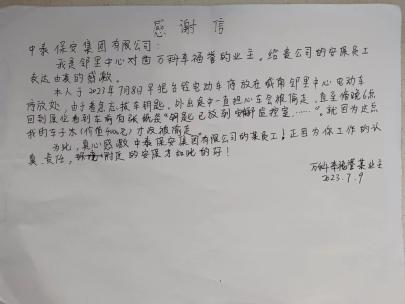 感谢信
中泰保安集团有限公司:
我是邻里中心对面万科幸福誉的业主。给贵公司的安保员工
表达由衷的感激。
本人于2023年7月8号早把台铃电动车停放在邻里中心电动车
停放处,由于着急忘拔车钥匙。外出后一直担心车会被偷走,直至傍晚6点
回到原处看到车前有张纸条"钥匙已放到监控室……"。就因为这点
我的车子才(价值4000元)才没被偷走
为此,真心感激中泰保安集团有限公司的某员工!正因为你工作的认
真、负责,附近的安保才如此的好!
万科幸福誉某业主
2023.7.9